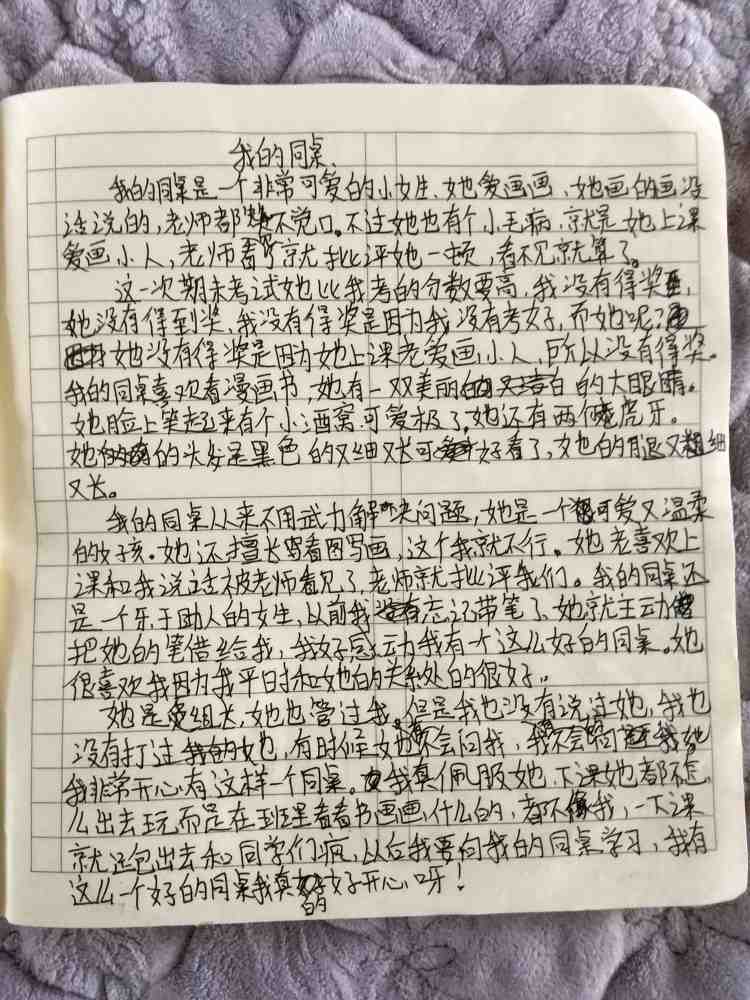 我的同桌.
我的同桌是一个非常可爱的小女生、她爱画画、她画的画没
话说的,老师都赞不觉口。不过她也有个小毛病,就是她上课
爱画小人,老师看了就批评她一顿,看不见就算了。
这一次期末考试她比我考的分数要高,我没有得奖,
她没有得到奖、我没有得奖是因为我没有考好,而她呢?
她没有得奖是因为她上课老爱画小人,所以没有得奖。
我的同桌喜欢看漫画书,她有一双美丽的又洁白的大眼睛。
她脸上笑起来有个小酒窝可爱极了,她还有两个虎牙。
她的头发是黑色的又细又长可好看了,她的腿又细
又长。
我的同桌从来不用武力解决问题,她是一个很可爱又温柔
的女孩。她还擅长看图写画,这个我就不行。她老喜欢上
课和我说话被老师看见了,老师就批评我们。我的同桌还
是一个乐于助人的女生,以前我忘记带笔了、她就主动
把她的笔借给我,我好感动我有一个这么好的同桌。她
很喜欢我因为我平时和她的关系处的很好。
她是组长,她也管过我。但是我也没有说过她,我也
没有打过她,有时候她不会问我,我不会问她
我非常开心有这样一个同桌。我真佩服她、下课她都不怎
么出去玩而是在班里看看书画画什么的,都不像我,一下课
就还跑出去和同学们疯,以后我要向我的同桌学习,我有
这么一个好的同桌我真的好开心呀!